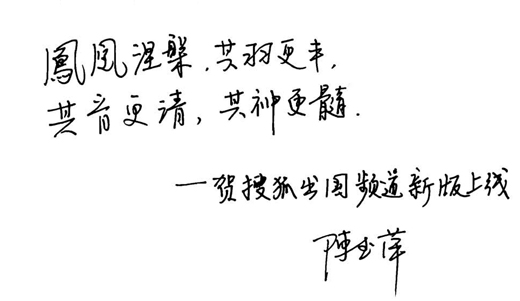 鳳凰涅槃，其羽更丰，
其音更清，其神更髓．
一贺搜狐出国频道新版上线
陳玉萍